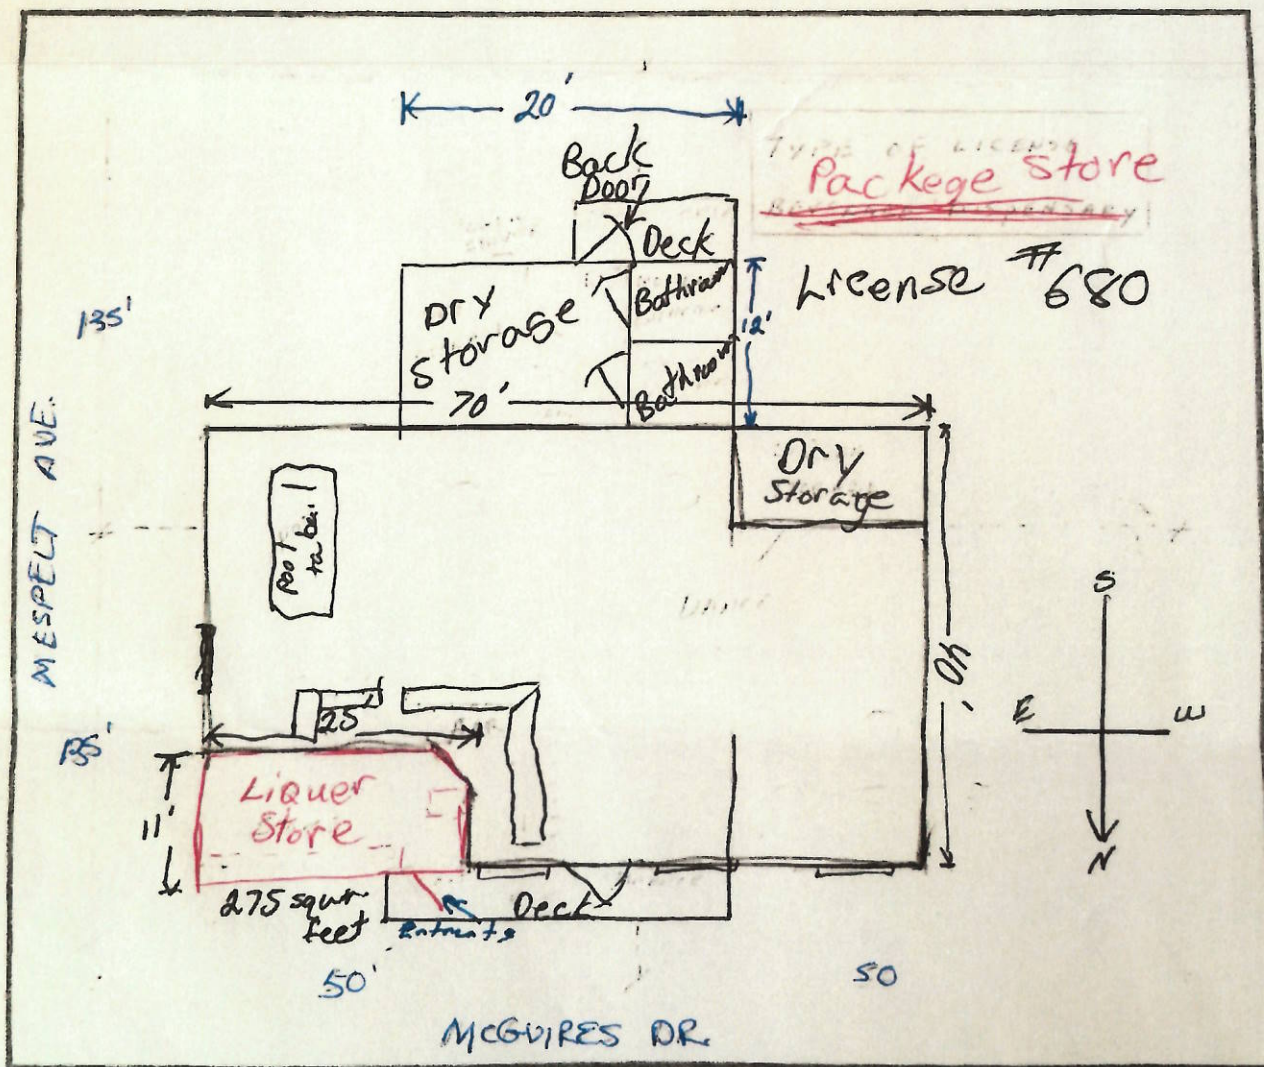 20'
Back
Door
TYPE OF LICENSE
Packege Store
BEVERAGE DISPENSARY
Deck
License #680
Dry
Storage
Bathroom
Bathroom
12'
135'
70'
Dry
Storage
MESPELT AVE.
Pool
tabel
40'
S
E
W
N
25
135'
11'
Liquer
Store
275 squr
feet
Deck
50'
50
MCGUIRES DR.